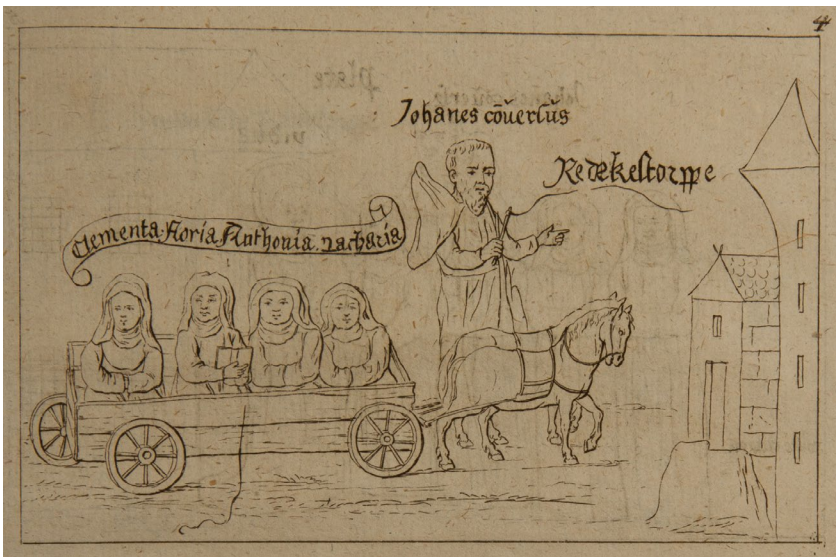 4
Johanes cōuersūs
Redekestorppe
Clementa. floria. Anthonia. Zacharia